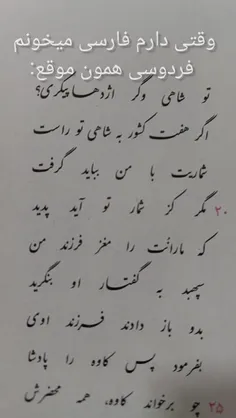 وقتی دارم فارسی میخونم
فردوسی همون موقع:
تو شاهی وگر اژدهاپیکری؟
اگر هفت کشور به شاهی تو راست
شماریت با من بباید گرفت
۲۰ مگر کز شمار تو آید پدید
که مارانْت را مغز فرزند من
سپهبد به گفتار او بنگرید
بدو باز دادند فرزند اوی
بفرمود پس کاوه را پادشا
۲۵ چو برخواند کاوه، همه محضرش